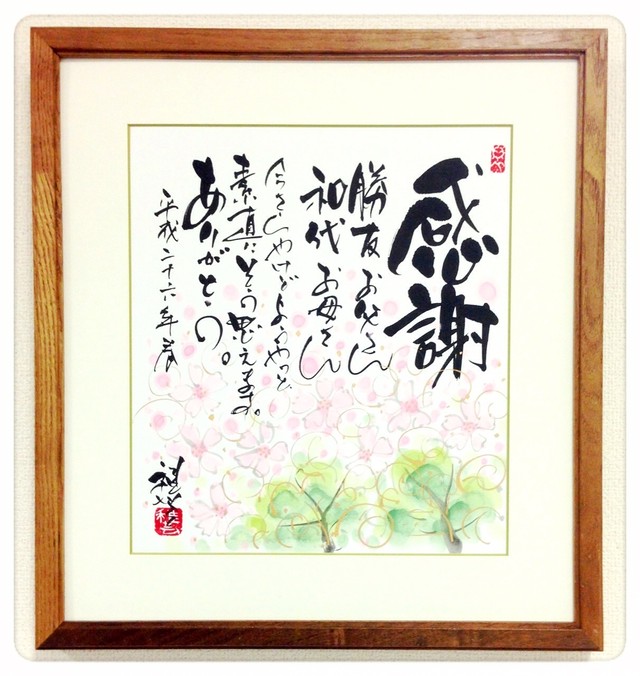 感謝
勝友 お父さん
和代 お母さん
今さらやけどようやっと
素直にそう思えます。
ありがとう。
平成二十六年春